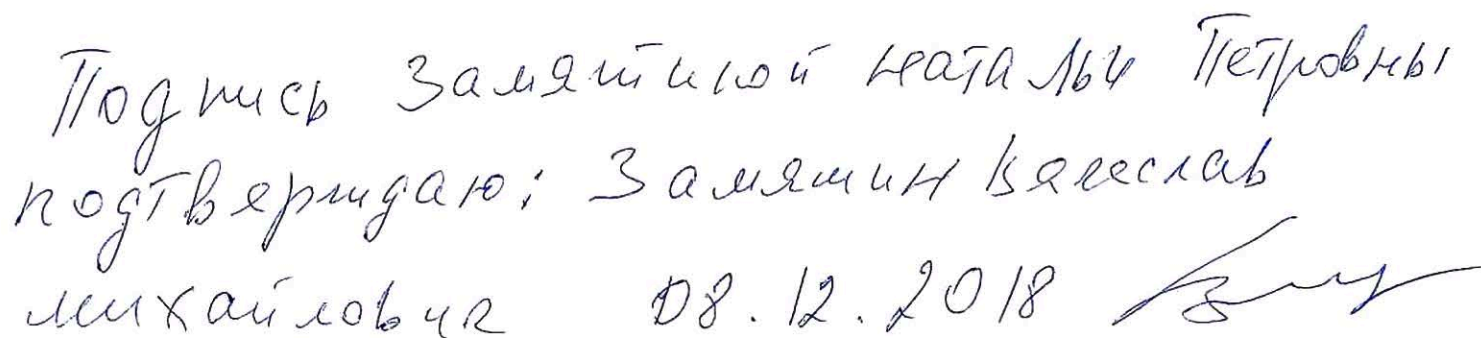 Подпись Замятиной натальи Петровны
подтверждаю: Замятин Вячеслав
михайлович 08.12.2018